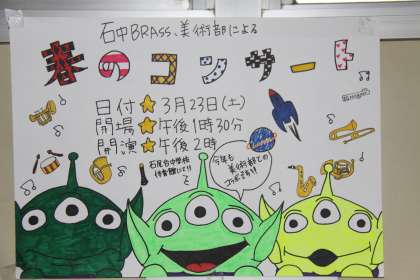 石中BRASS、美術部による
春のコンサート
日付★3月23日(土)
開場★午後1時30分
開演★午後2時
石尾台中学校
体育館にて!!
今年も
美術部との
コラボあり!!